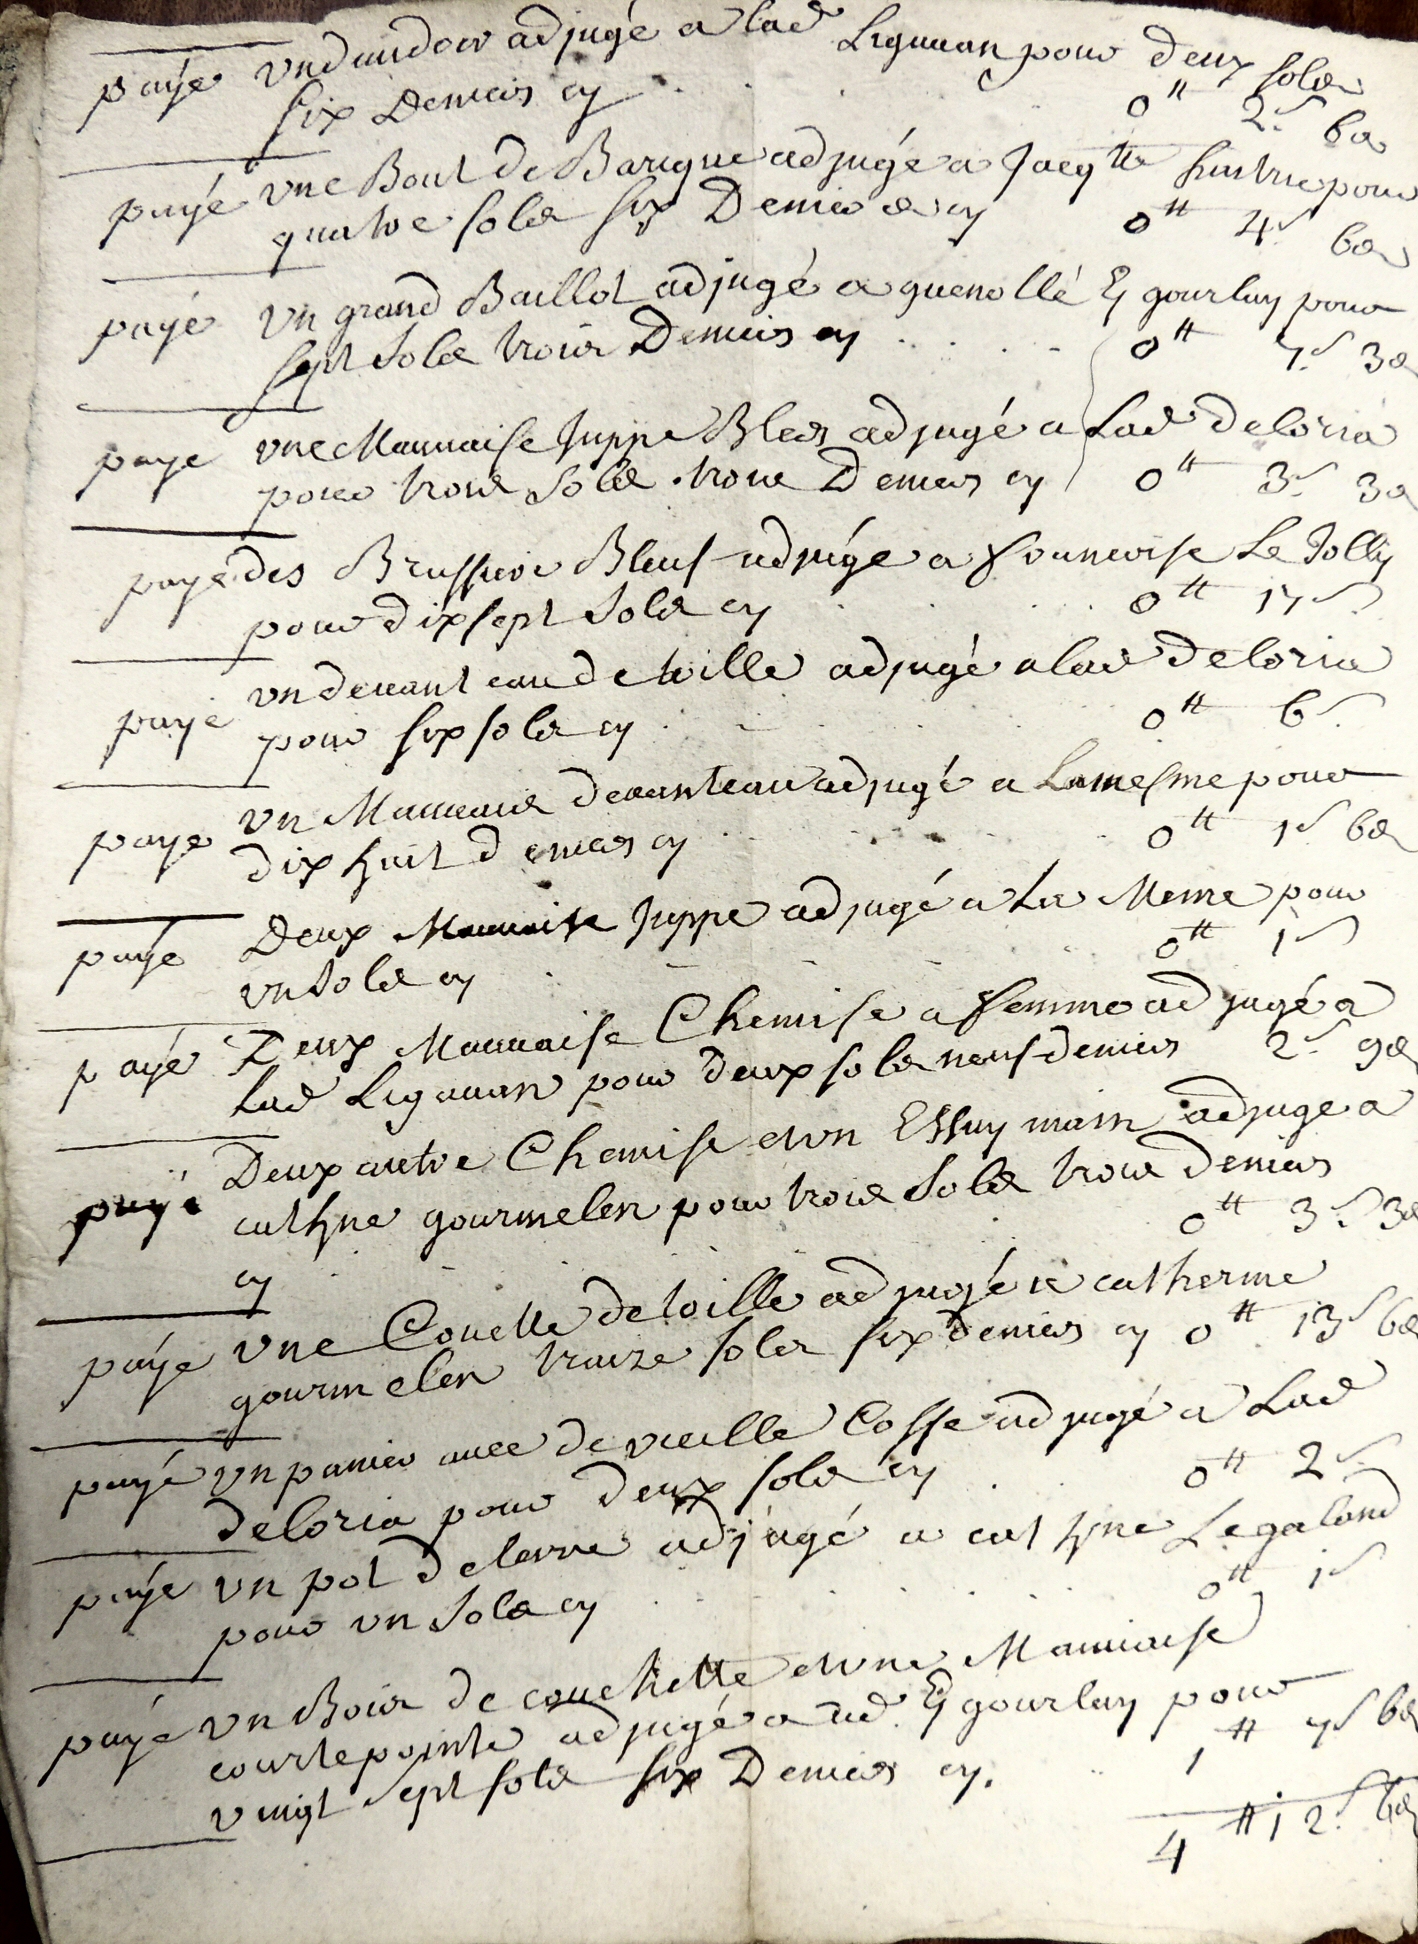 payé un dudoir adjugé a lad Ligauan pour deux sols
six deniers cy . . . 0# 2s 6d
payé une Bout de Barique adjugé a Jacqtte pour
quatre sols six Deniers cy 0# 4s 6d
payé un grand Baillot adjugé a guenollé gourlay pour
sept sols trois Deniers cy . . . . 0# 7s 3d
payé une Mauuaise Juppe Bleu adjugé a Lad Deloria
pour trois sols trois Deniers cy 0# 3s 3d
payé des Brassiere Bleuf adjugé a francoise Le Jolly
pour dix sept sols cy . . . 0# 17s
payé un deuant eau de toille adjugé a lad Deloria
pour six sols cy . . . 0# 6s
payé un Mauuais deuanteau adjugé a Lamesme pour
dix huit deniers cy . . . 0# 1s 6d
payé Deux Mauuaise Juppe adjugé a La Meme pour
un sols cy . . . 0# 1s
payé Deux Mauuaise Chemise a femme adjugé a
Lad Ligauan pour deux sols neuf deniers 2s 9d
payé Deux autre Chemise et un Essuy main adjugé a
cathne gourmelen pour trois sols trois deniers
cy . . . 0# 3s 3d
payé une Couette de toille adjugé a catherine
gourmelen traize sols six deniers cy 0# 13s 6d
payé un panier auec de vieille Cosse adjugé a Lad
deloria pour deux sols cy . . . 0# 2s
payé un pot de terre adjugé a cathne Legaland
pour un sols cy . . . 0# 1s
payé un Bois de couchette et une Mauuaise
courtepointe adjugé a ud gourlay pour
vingt sept sols six Deniers cy. 1# 7s 6d
4# 12s 6d